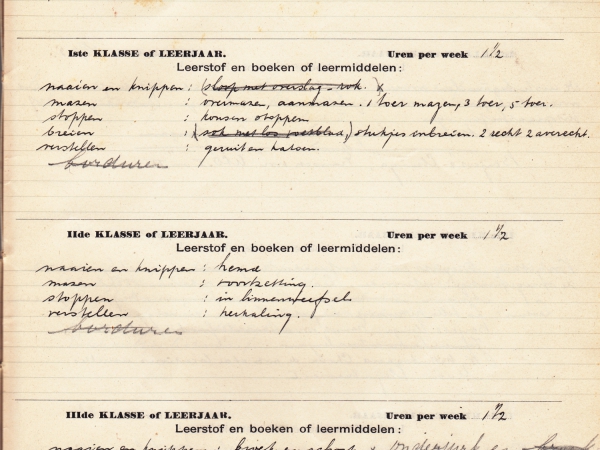 Iste KLASSE of LEERJAAR. Uren per week 1 1/2
Leerstof en boeken of leermiddelen:
naaien en knippen : (sloop met overslag - rok.)
mazen : overmazen, aanmazen. 1 toer mazen, 3 toer, 5 toer.
stoppen : kousen stoppen
breien : (sok met los voetblad,) stukjes enbreien. 2 recht 2 averecht.
verstellen : geruit en katoen.
borduren
IIde KLASSE of LEERJAAR. Uren per week 1 1/2
Leerstof en boeken of leermiddelen:
naaien en knippen : hemd
mazen : voortzetting.
stoppen : in linnenweefsel
verstellen : herhaling.
borduren
IIIde KLASSE of LEERJAAR. Uren per week 1 1/2
Leerstof en boeken of leermiddelen:
naaien en knippen : broek en schort